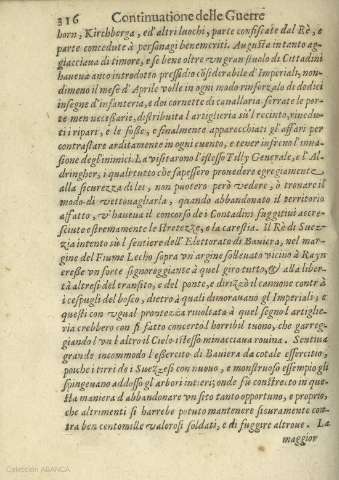 316 Continuatione delle Guerre
born, Kirchberga, ed'altri luochi, parte confiscate dal Rè, e
parte concedute à personagi benemeriti. Augusta intanto ag-
giacciaua di timore, e se bene oltre vn gran stuolo di Cittadini
haueua anco introdotto pressidio cõsiderabile d'Imperiali, non-
dimeno il mese d'Aprile volle in ogni modo rinforzalo di dodici
insegne d'infanteria, e doi cornette di cauallaria, serrate le por-
te men necessarie, distribuita l'artiglieria sù'l recinto, riuedu-
ti i ripari, e le fosse, e finalmente apparecchiati gl'affari per
contrastare arditamente in ogni euento, e tener in freno l'inua-
sione degl'inimici. La visitarono l'istesso Tilly Generale, e l'Al-
dringher, i quali tutto che sapessero prouedere egregiamente
alla sicurezza di lei, non puotero però vedere, ò trouare il
modo di vettouagliarla, quando abbandonato il territorio
affatto, v'haueua il concorso de i Contadini fuggitiui accre-
sciuto estremamente le strettezze, e la carestia. Il Rè di Sue-
zia intento sù'l sentiero dell'Elettorato di Bauiera, nel mar-
gine del Fiume Lecho sopra vn'argine solleuato vicino à Rayn
eresse vn forte signoreggiante à quel giro tutto, & alla liber-
tà altresì del transito, e del ponte, e dirizzò il cannone contrà
i cespugli del bosco, dietro à quali dimorauano gl'Imperiali, e
questi con vgual prontezza riuoltato à quel segno l'artiglie-
ria crebbero con sì fatto concerto l'horribil tuono, che gareg-
giando l'vn l'altro il Cielo istesso minacciaua rouina. Sentiua
grande incommodo l'esercito di Bauiera da cotale essercitio,
poiche i tirri de i Suezzesi con nuouo, e monstruoso essempio gli
spingeuano addosso gl'arbori intieri; onde fù constretto in que-
sta maniera d'abbandonare vn sito tanto opportuno, e proprio,
che altrimenti si harrebbe potuto mantenere sicuramente con-
tra ben centomille valorosi soldati, e di fuggire altroue. La
maggior
Colección ABANCA